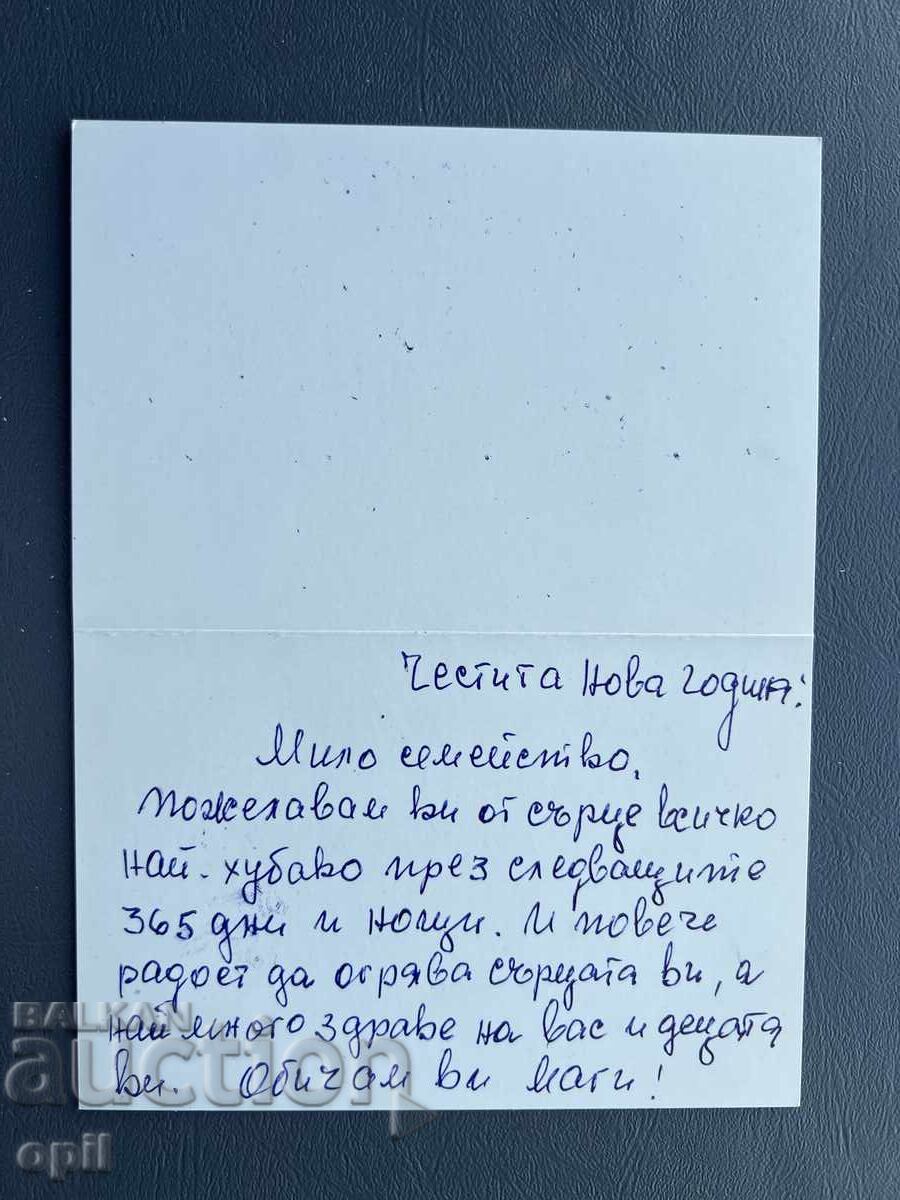 Честита Нова година!
Мило семейство,
Пожелавам ви от сърце всичко
най-хубаво през следващите
365 дни и нощи. И повече
радост да огрява сърцата ви, а
най много здраве на вас и децата
ви. Обичам ви Маги!
BALKAN
auction
opil